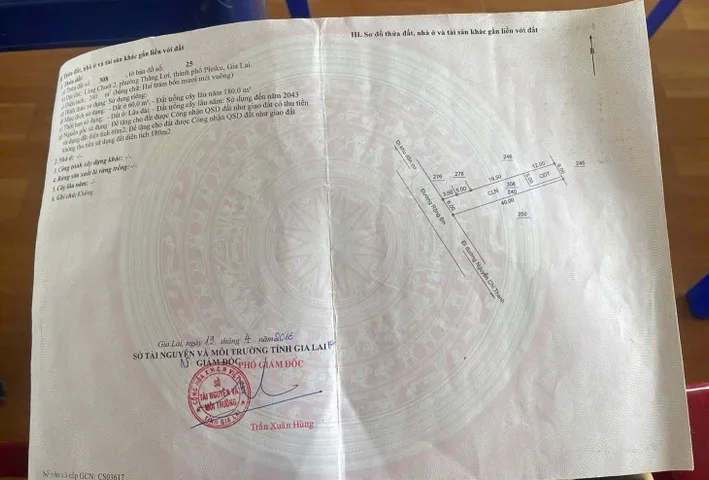 II. Thửa đất, nhà ở và tài sản khác gắn liền với đất
1. Thửa đất:
a) Thửa đất số: 308 , tờ bản đồ số: 25
b) Địa chỉ: Làng Chuét 2, phường Thắng Lợi, thành phố Pleiku, Gia Lai.
c) Diện tích: 240 m² (bằng chữ: Hai trăm bốn mươi mét vuông)
d) Hình thức sử dụng: Sử dụng riêng;
đ) Mục đích sử dụng: - Đất ở 60,0 m², - Đất trồng cây lâu năm 180,0 m²
e) Thời hạn sử dụng: - Đất ở: Lâu dài; - Đất trồng cây lâu năm: Sử dụng đến năm 2043
g) Nguồn gốc sử dụng: Để tặng cho đất được Công nhận QSD đất như giao đất có thu tiền
sử dụng đất diện tích 60m2; Để tặng cho đất được Công nhận QSD đất như giao đất
không thu tiền sử dụng đất diện tích 180m2
2. Nhà ở: -/-
3. Công trình xây dựng khác: -/-
4. Rừng sản xuất là rừng trồng: -/-
5. Cây lâu năm: -/-
6. Ghi chú: Không
Gia Lai, ngày 19 tháng 4 năm 2016
SỞ TÀI NGUYÊN VÀ MÔI TRƯỜNG TỈNH GIA LAI
GIÁM ĐỐC
PHÓ GIÁM ĐỐC
SỞ
TÀI NGUYÊN VÀ
MÔI TRƯỜNG
TỈNH GIA LAI
Trần Xuân Hùng
Số vào sổ cấp GCN: CS03617
III. Sơ đồ thửa đất, nhà ở và tài sản khác gắn liền với đất
B
Đi khu dân cư
Đường Rộng 8m
Đi đường Nguyễn Chí Thanh
276
278
246
245
250
3.00
5.00
19.50
12.00
6.00
6.00
5.00
CLN
308
240
ODT
40.00